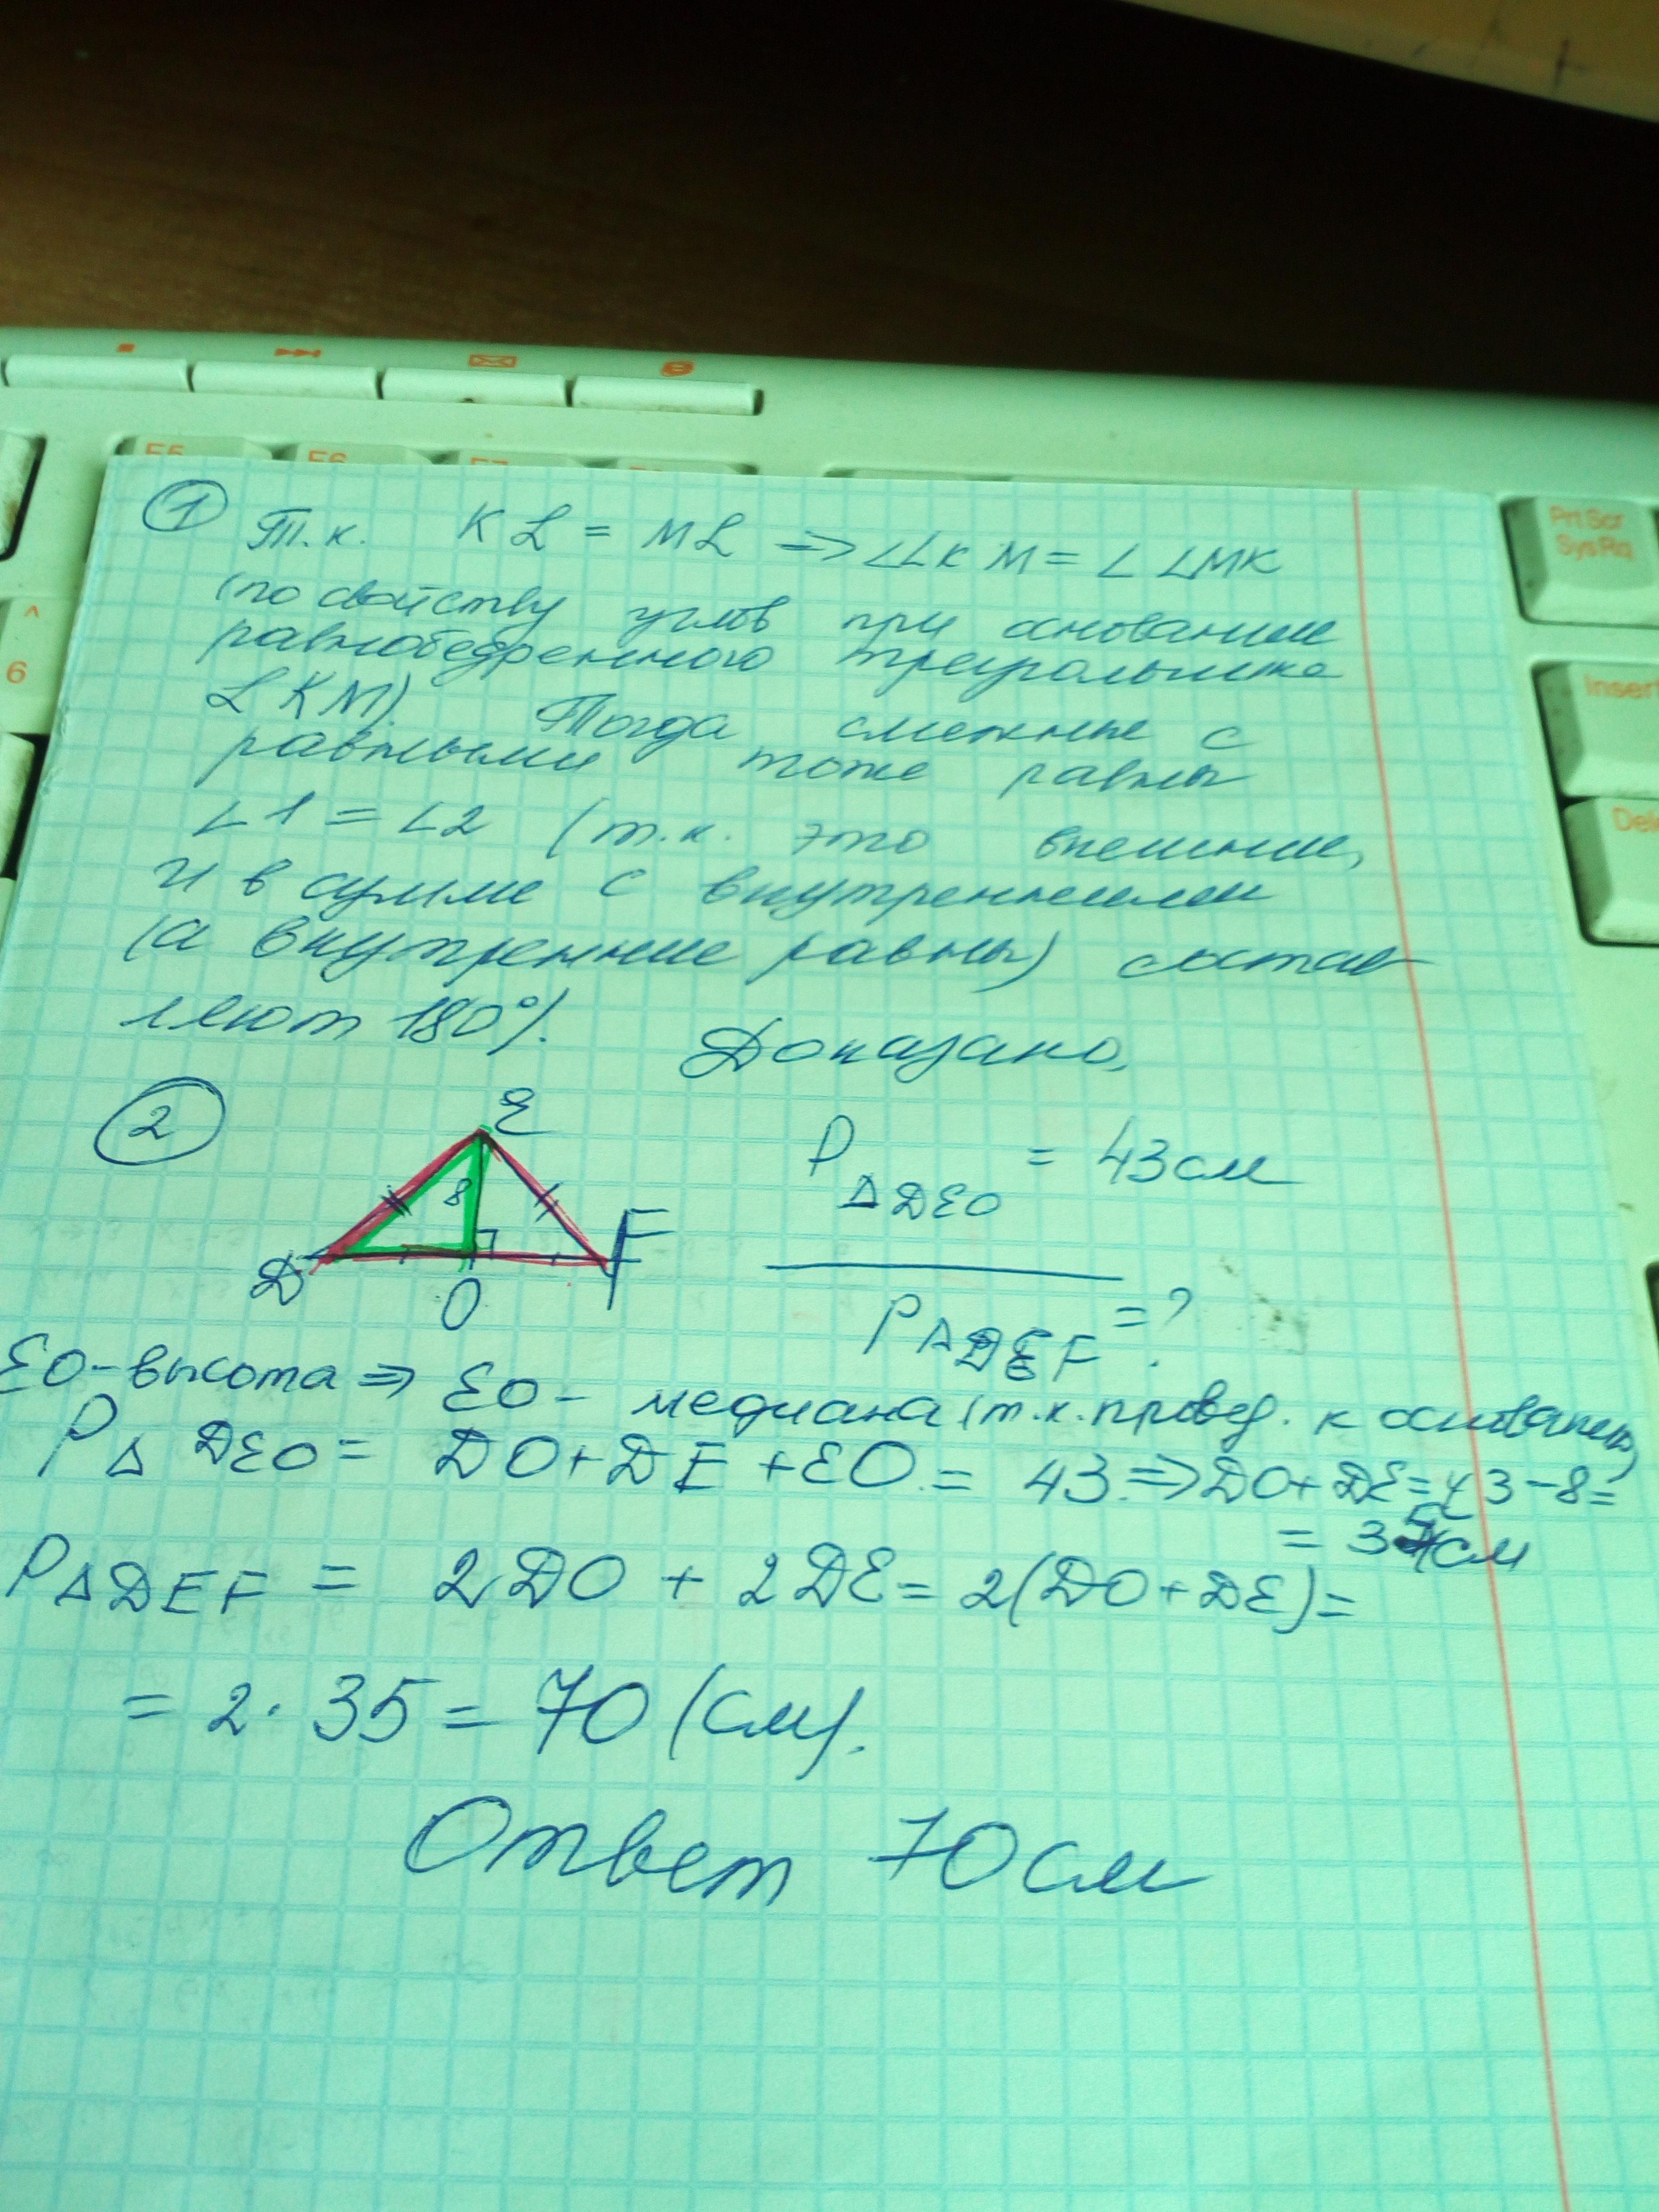 F5 F6 F7
PrtScr
SysRq
Insert
^
6
1 Т.к. KL = ML => ∠LKM = ∠LMK
(по свойству углов при основании
равнобедренного треугольника
LKM). Тогда смежные с
равными тоже равны
∠1 = ∠2 (т.к. это внешние,
и в сумме с внутренними
(а внутренние равны) состав
ляют 180°).
Доказано.
2
E
8
D
O
F
P△DEO = 43 см
P△DEF = ?
EO - высота => EO - медиана (т.к. провед. к основанию)
P△DEO = DO + DE + EO = 43 => DO + DE = 43 - 8 =
= 35 см
P△DEF = 2DO + 2DE = 2(DO + DE) =
= 2 · 35 = 70 (см).
Ответ 70 см